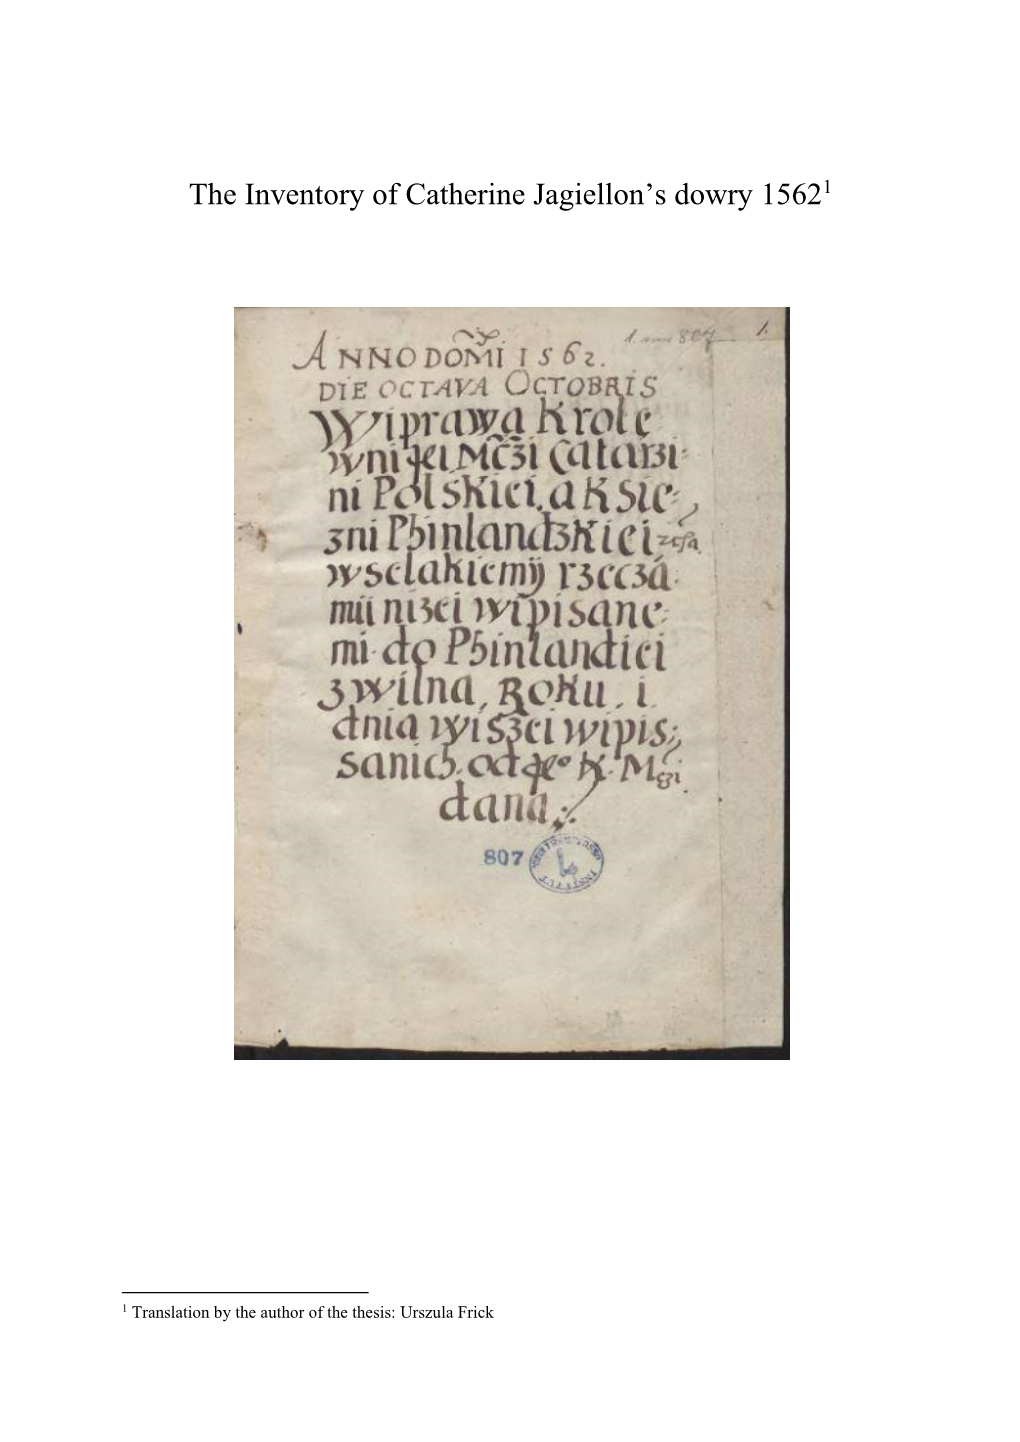 The Inventory of Catherine Jagiellon's dowry 1562¹
1.
ANNO DOMĪ 1562.
DIE OCTAVA OCTOBRIS
Wiprawa Krole
wni jei Mczi Catarzi:
ni Polskiei, a Ksie:
zni Phinlandzkiei
wselakiemÿ rzeczá
mii nizei wipisane:
mi do Phinlandiei
z wilna, Roku, i
dnia wiszei wipis:
sanich. od jeº K. Mczi
dana
807
INSTYTUT
¹ Translation by the author of the thesis: Urszula Frick